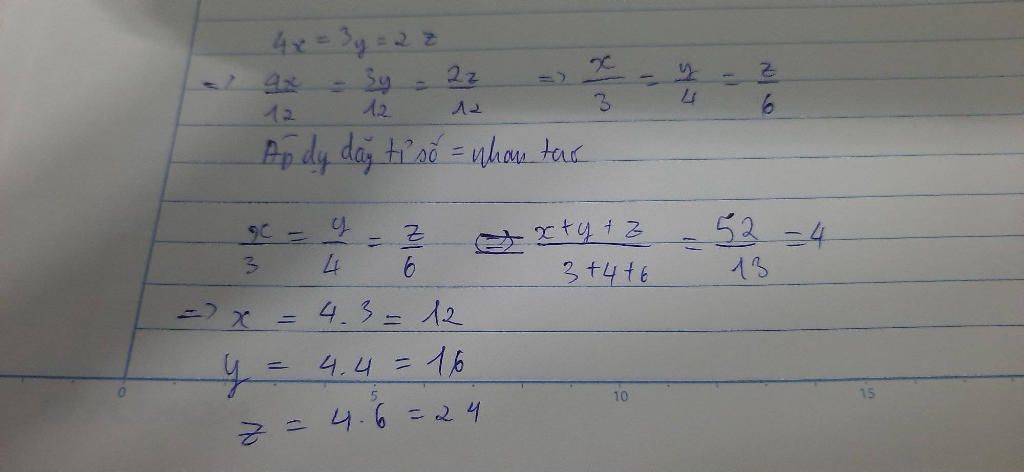 4x = 3y = 2 z
=> 4x/12 = 3y/12 = 2z/12 => x/3 = y/4 = z/6
Áp dụ dãy tỉ số = nhau ta có
x/3 = y/4 = z/6 => x+y+z/3+4+6 = 52/13 = 4
=> x = 4.3 = 12
y = 4.4 = 16
0 5 10 15
z = 4.6 = 24